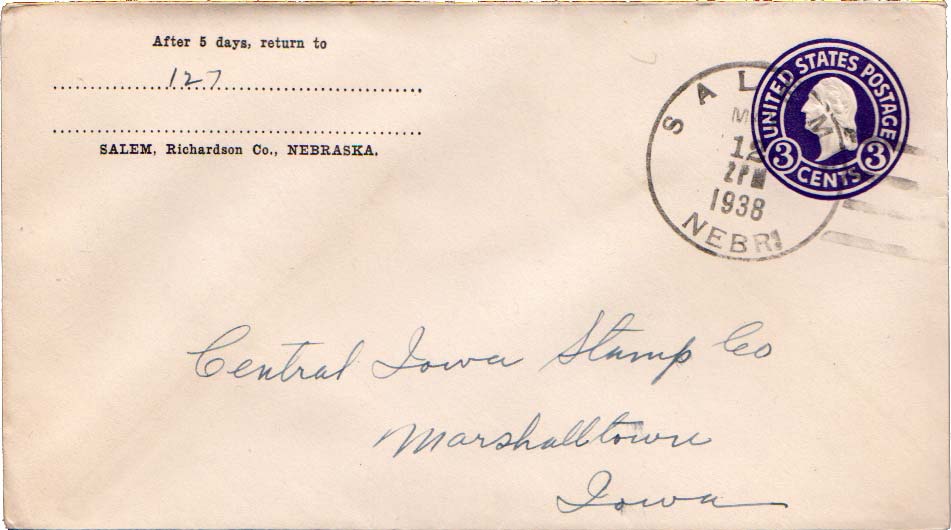 After 5 days, return to
127
SALEM, Richardson Co., NEBRASKA.
SALEM
12
2 PM
1938
NEBR.
UNITED STATES POSTAGE
3 CENTS 3
Central Iowa Stamp Co
Marshalltown
Iowa